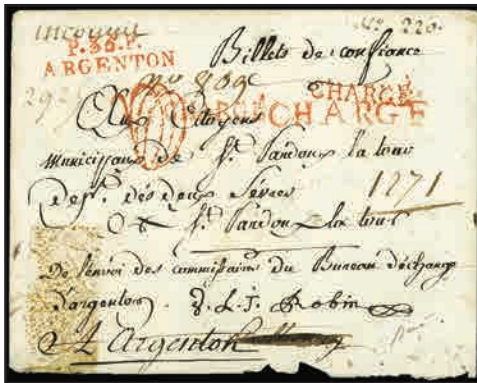 inconnu
N° 220.
P.35.P.
ARGENTON
Billets de confiance
n° 809
292
CHARGÉ
CHARGÉ
Aux Citoyens
Municipaux de St. Pardoux la
dept. des deux Sèvres
1271
St. Pardoux
De l'envoi des commissaires du Bureau d'échange
d'argenton. Robin
A Argenton